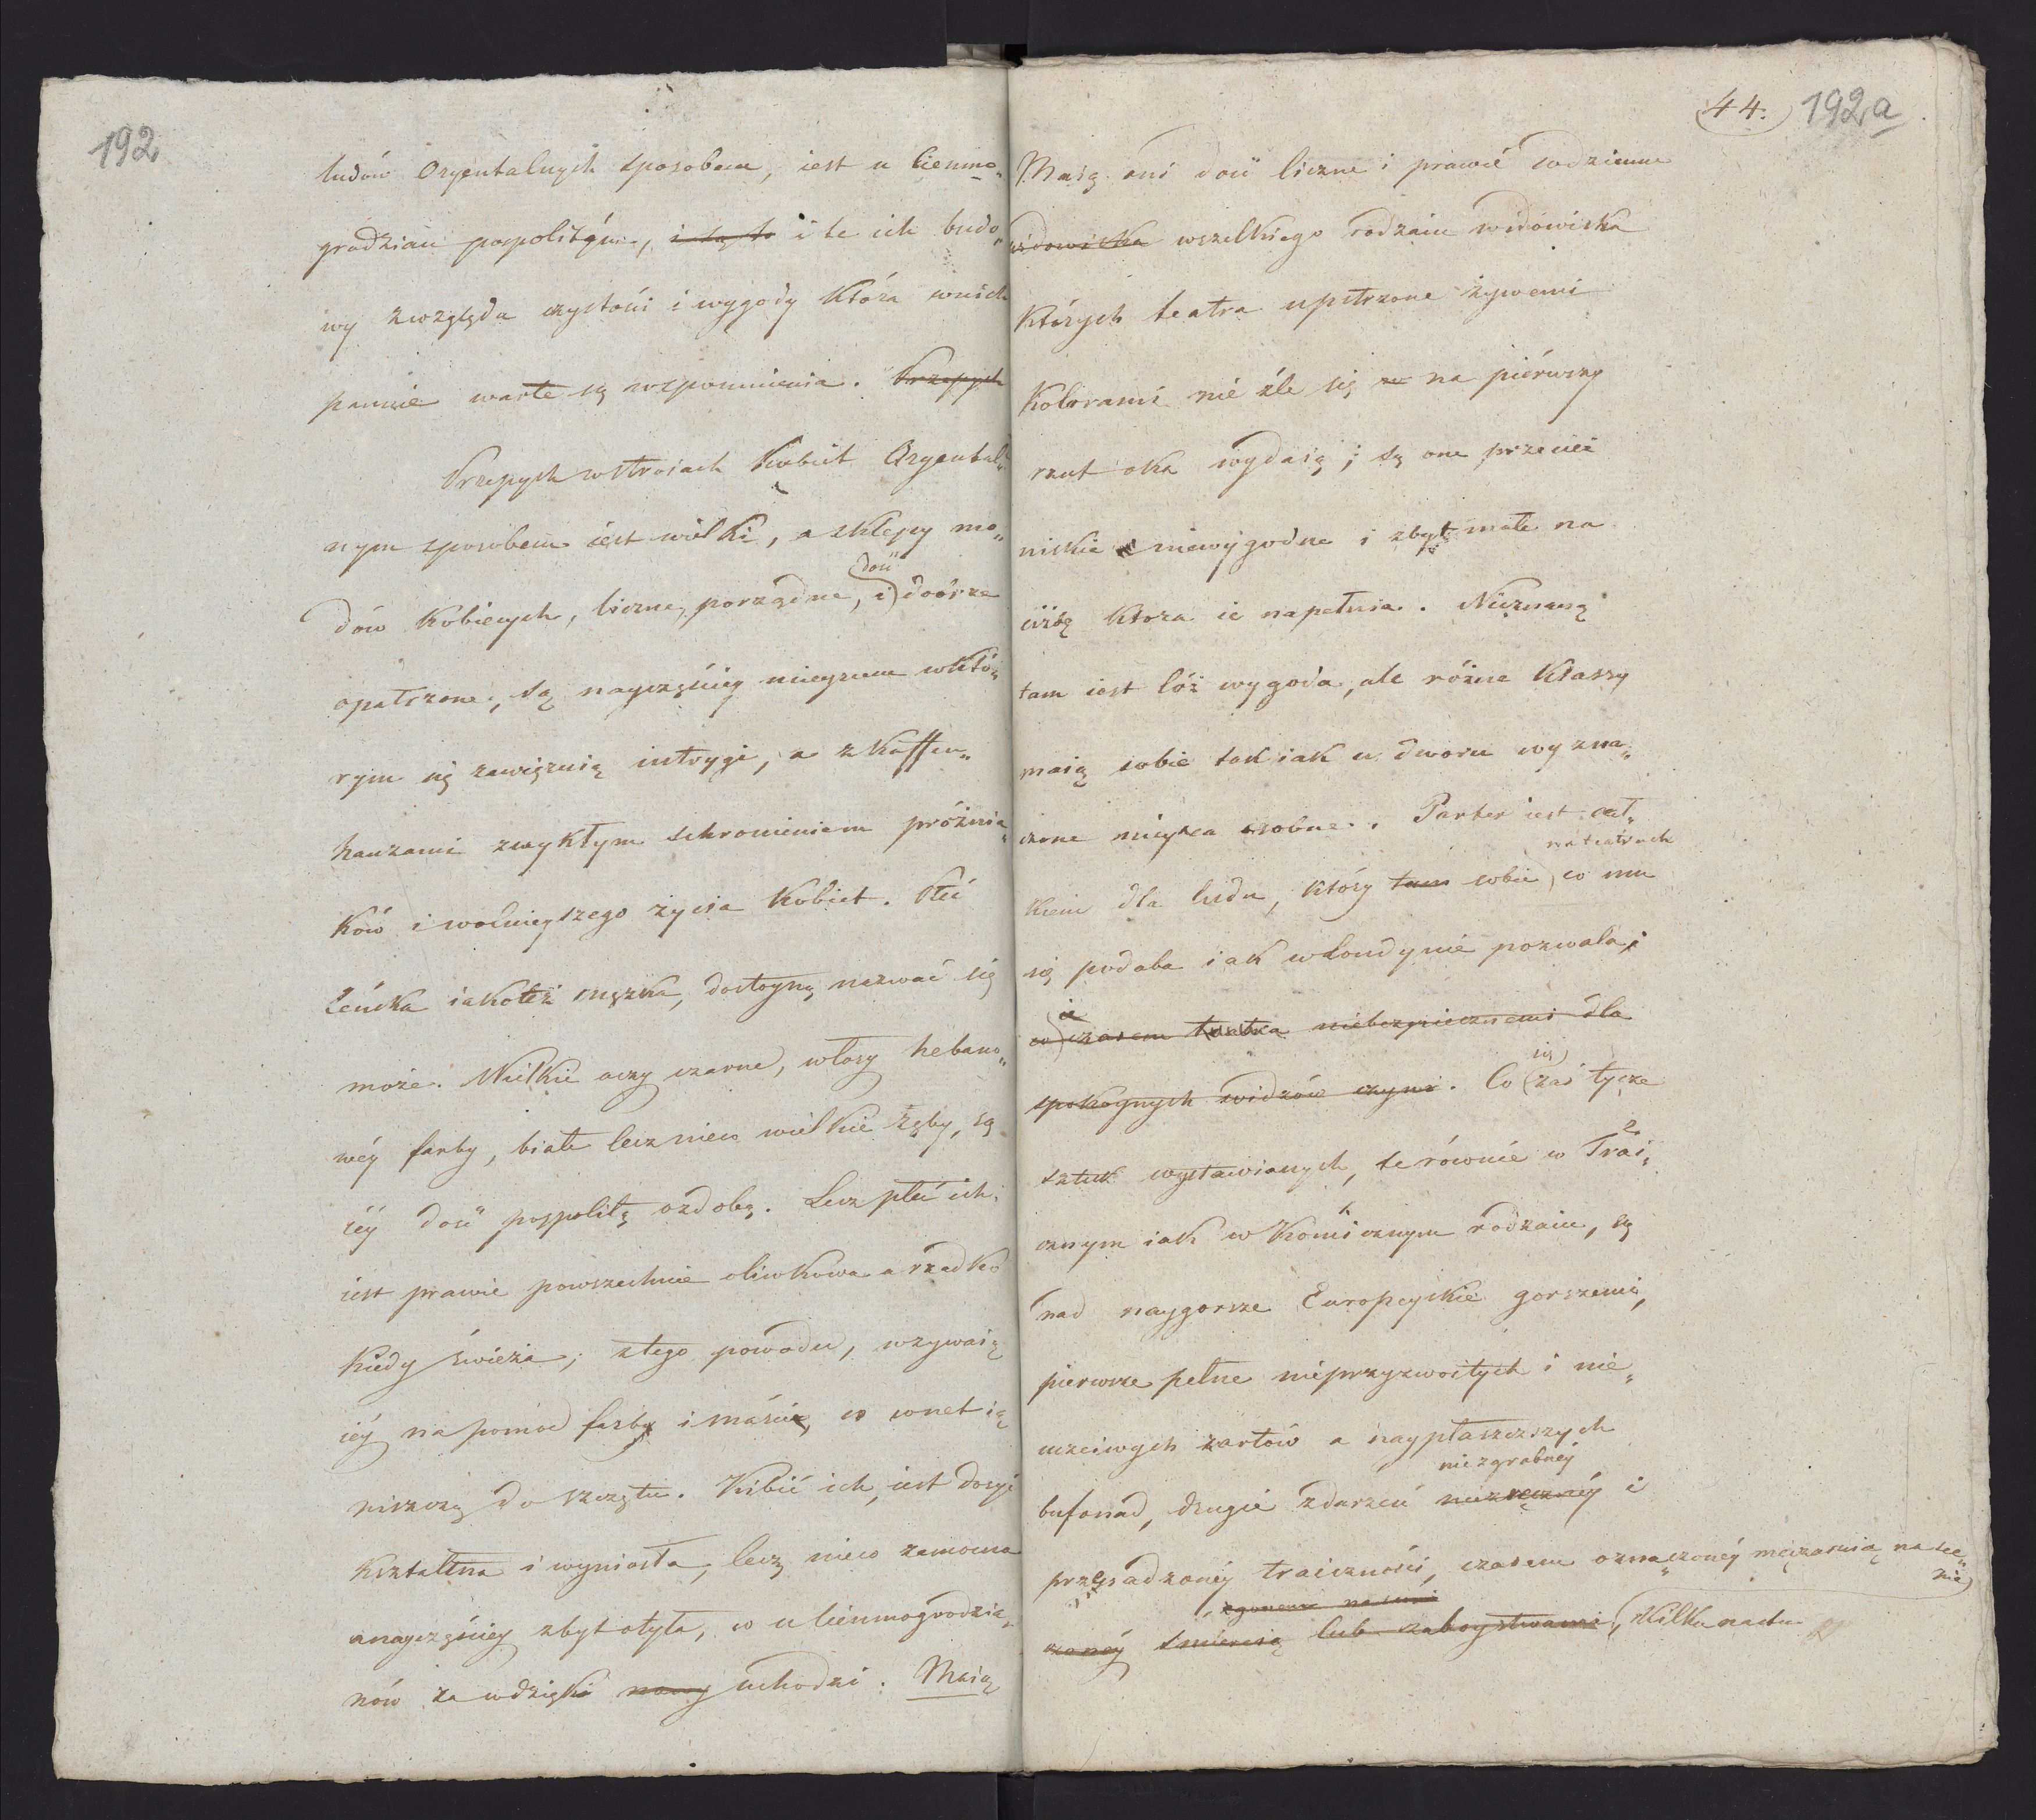 192
ludów Oryentalnych sposobem, iest u Ciemno„
grodzian pospolitym, i te ich budo„
wy zwzględu czystości i wygody która wnich
panuie warte są wspomnienia. Przepych
Przepych wstroiach kobiet Oryental„
nym sposobem iest wielki, a sklepy mo„
dość
dów kobiecych, liczne, porządne, i dobrze
opatrzone, są nayczęściey mieyscem wktó„
rym się zawięzuią intrygi, a z kaffen„
hauzami zwykłym schronieniem próżnia„
ków i wolnieyszego życia kobiet. Płeć
żeńska iakoteż męzka, dostoyną nazwać się
może. Wielkie oczy czarne, włosy hebano„
wéy farby, białe lecz nieco wielkie zęby, są
iéy dość pospolitą ozdobą. Lecz płeć ich
iest prawie powszechnie oliwkowa a rzadko
kiedy świeża; ztego powodu, wzywaią
iéy na pomoc farby i maście, co wnet ią
niszczą do szczętu. Kibić ich, iest dosyć
kształtna i wyniosła, lecz nieco zamocna
anayczęściey zbyt otyła, co u ciemnogrodzia„
nów za wdzięki uchodzi. Maią
44. 192a
Maią oni dość liczne i prawie codzienne
widowiska wszelkiego rodzaiu widowiska
których teatra upstrzone żywemi
kolorami nie źle się na piérwszy
rzut oka wydaią; są one przecież
niskie niewygodne i zbyt małe na
ciżbę ktora ie napełnia. Nieznaną
tam iest lóż wygoda, ale różne klassy
maią sobie tak iak u dworu wyzna„
czone mieysca osobne. Parter iest cał„
na teatrach
kiem dla ludu, który tam sobie, co mu
się podoba iak wLondynie pozwala;
ie
co czasem teatra niebezpiecznemi dla
się
spokoynych widzów czyni. Co zaś tycze
sztuk wystawianych, te równie w Trai„
cznym iak w Komicznym rodzaiu, są
nad naygorsze Europeyskie gorszemi,
pierwsze pełne nieprzyzwoitych i nie„
uczciwych żartów a naypłaszczszych
niezgrabnéy
bufonad, drugie zdarzeń niezręcznéy i
przesadzonéy traiczności, czasem oznaczonéy męczarnią na sce„
nie
zgonem na scenie
czonéy śmiercią lub zaboystwami, Kilkunastu